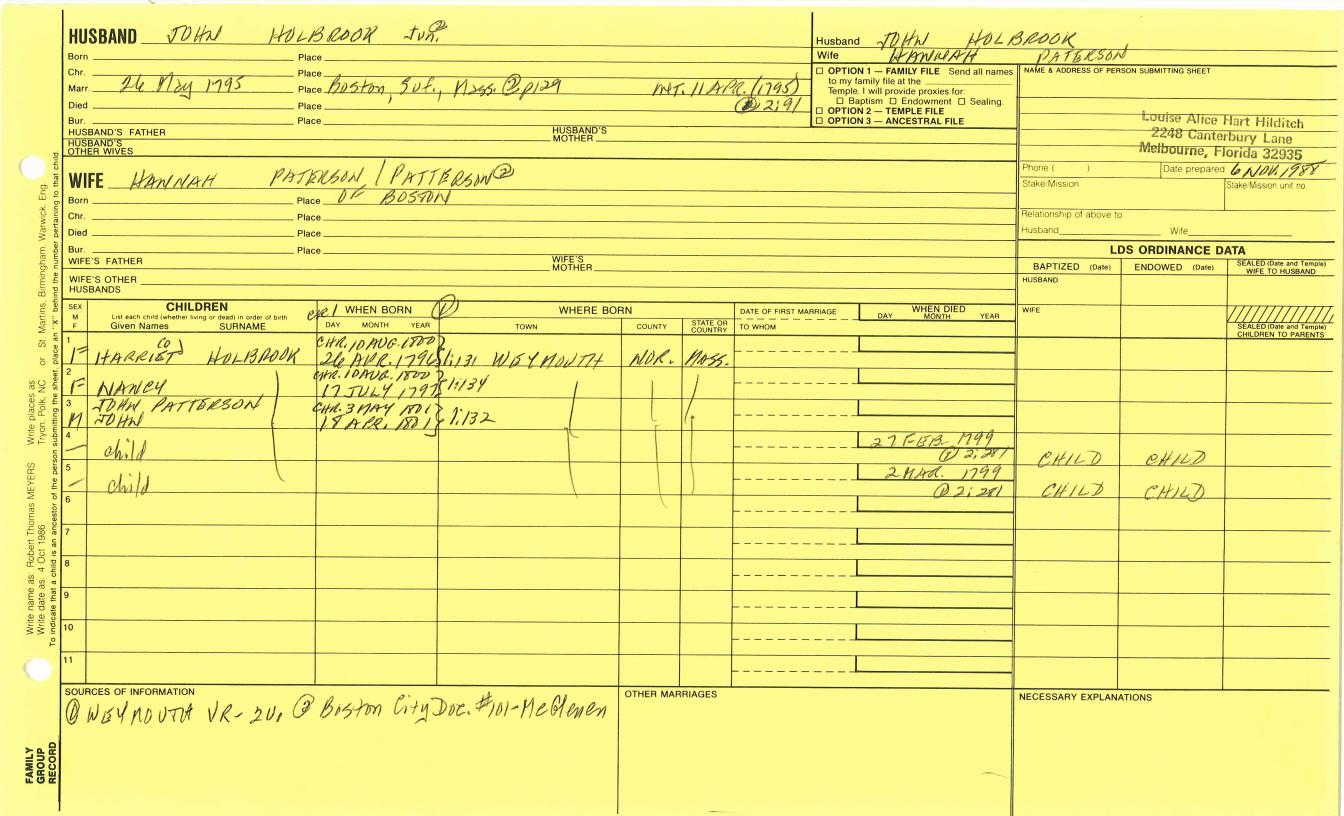 HUSBAND JOHN HOLBROOK Jun. ②
Born Place
Chr. Place
Marr 26 May 1795 Place Boston, Suf., Mass. ② p129 INT. 11 APR. (1795)
① 2:91
Died Place
Bur. Place
HUSBAND'S FATHER HUSBAND'S MOTHER
HUSBAND'S OTHER WIVES
WIFE HANNAH PATERSON / PATTERSON ②
Born Place OF BOSTON
Chr. Place
Died Place
Bur. Place
WIFE'S FATHER WIFE'S MOTHER
WIFE'S OTHER HUSBANDS
Husband JOHN HOLBROOK
Wife HANNAH PATERSON
☐ OPTION 1 — FAMILY FILE Send all names
to my family file at the
Temple. I will provide proxies for:
☐ Baptism ☐ Endowment ☐ Sealing.
☐ OPTION 2 — TEMPLE FILE
☐ OPTION 3 — ANCESTRAL FILE
NAME & ADDRESS OF PERSON SUBMITTING SHEET
Louise Alice Hart Hilditch
2248 Canterbury Lane
Melbourne, Florida 32935
Phone ( ) Date prepared 6 NOV. 1988
Stake/Mission Stake/Mission unit no.
Relationship of above to
Husband Wife
LDS ORDINANCE DATA
BAPTIZED (Date) ENDOWED (Date) SEALED (Date and Temple) WIFE TO HUSBAND
HUSBAND
WIFE
SEALED (Date and Temple) CHILDREN TO PARENTS
SEX M F
CHILDREN
List each child (whether living or dead) in order of birth
Given Names SURNAME
chr / WHEN BORN ①
DAY MONTH YEAR
WHERE BORN
TOWN COUNTY STATE OR COUNTRY
DATE OF FIRST MARRIAGE
TO WHOM
WHEN DIED
DAY MONTH YEAR
1 CHR. 10 AUG. 1800
F HARRIET HOLBROOK 26 APR. 1796 1:131 WEYMOUTH NOR. MASS.
2 CHR. 10 AUG. 1800
F NANCY 17 JULY 1797 1:134
3 JOHN PATTERSON CHR. 3 MAY 1801
M JOHN 18 APR. 1801 1:132
4 27 FEB. 1799
— child ① 2:281 CHILD CHILD
5 2 MAR. 1799
— child ① 2:281 CHILD CHILD
6
7
8
9
10
11
SOURCES OF INFORMATION
① WEYMOUTH VR- 2v. ② Boston City Doc. #101-McGlenen
OTHER MARRIAGES
NECESSARY EXPLANATIONS
Write name as Robert Thomas MEYERS Write places as Tryon, Polk, NC or St Martins, Birmingham, Warwick, Eng.
Write date as 4 Oct 1986
To indicate that a child is an ancestor of the person submitting the sheet, place an "X" behind the number pertaining to that child
FAMILY
GROUP
RECORD